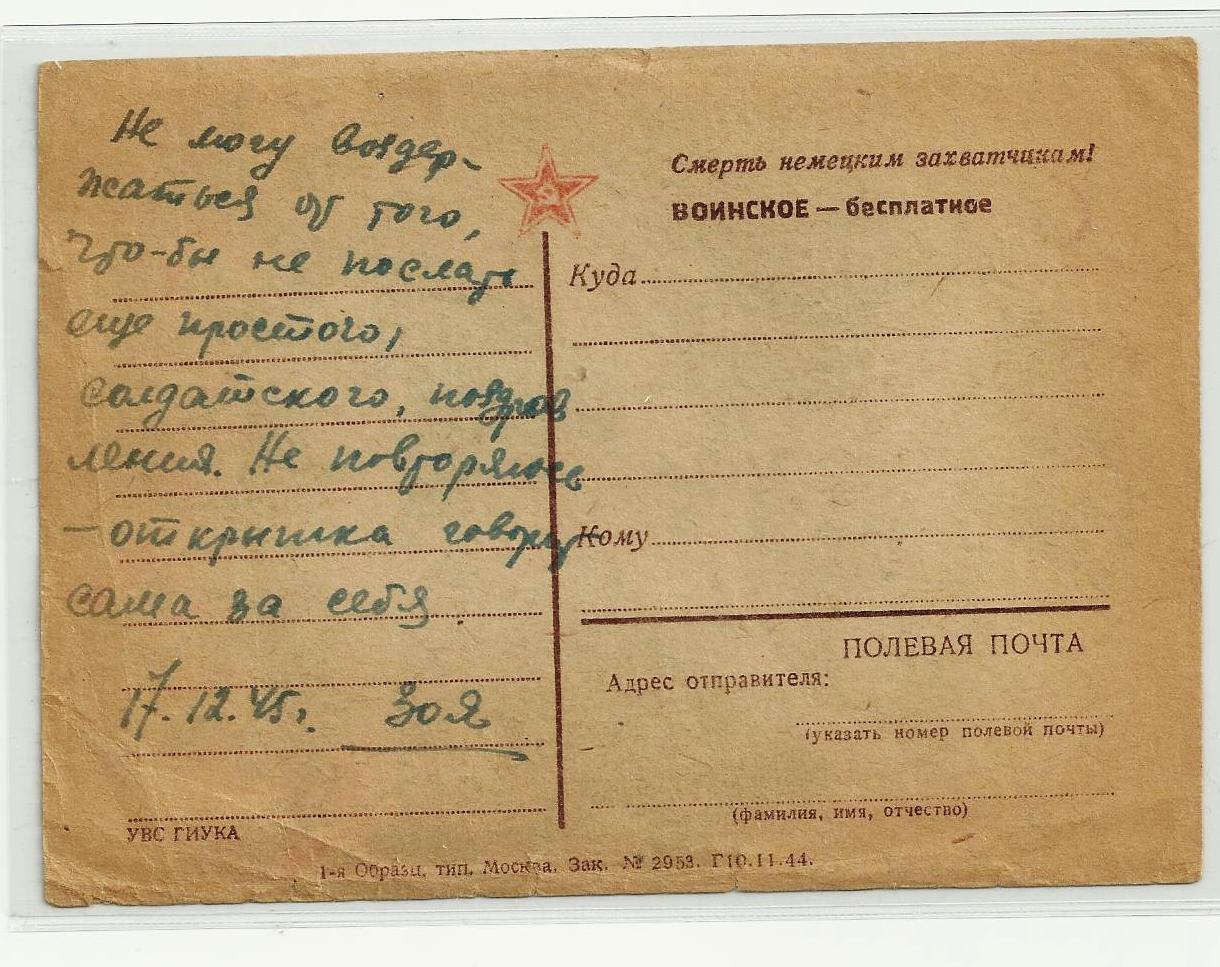 Не могу воздер-
жаться от того,
что-бы не послать
еще простого,
солдатского, поздрав
ления. Не повторяюсь
— открытка говорит
сама за себя.
17.12.45г. Зоя
УВС ГИУКА
Смерть немецким захватчикам!
ВОИНСКОЕ — бесплатное
Куда
Кому
ПОЛЕВАЯ ПОЧТА
Адрес отправителя:
(указать номер полевой почты)
(фамилия, имя, отчество)
1-я Образц. тип. Москва. Зак. № 2953. Г10.11.44.